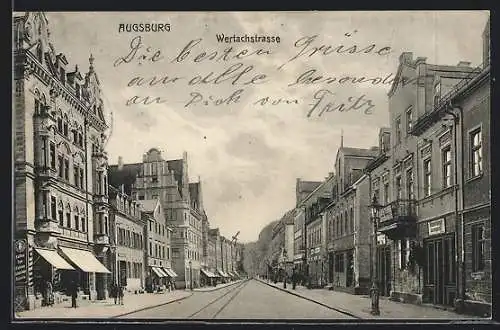 AUGSBURG
Wertachstrasse
Die besten Grüsse
an alle besonders
an Dich von Fritz